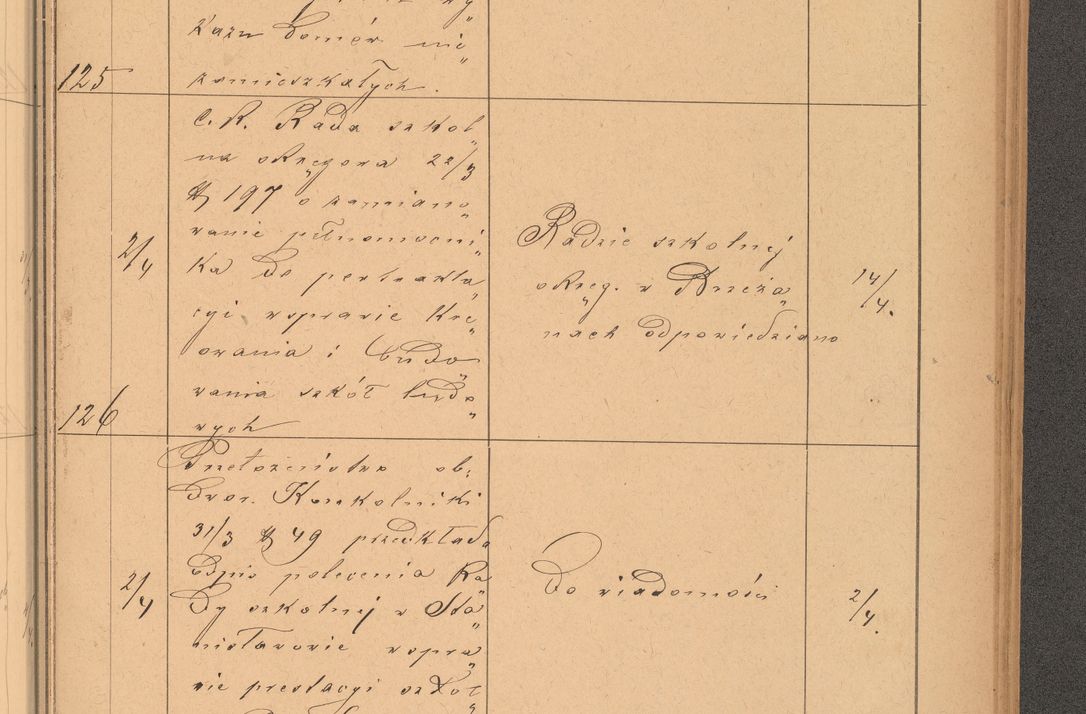 kazu domów nie„
125
zamieszkałych.
C. K. Rada szkol„
na okręgowa 22/3
№ 197 o zamiano„
wanie pełnomocni„
2/4
ka do pertrakta„
cyi wsprawie kre„
owania i budo„
wania szkół ludo„
126
wych
Radzie szkolnej
okręg. w Brzeża„
nach odpowiedziano
14/4.
Przełożeństwo ob:
dwor. Konkolniki
31/3 № 49 przedkłada
odpis polecenia Ra„
2/4
dy szkolnej w Sta„
nisławowie wspra„
wie prestacyi szkol„
Do wiadomości
2/4.